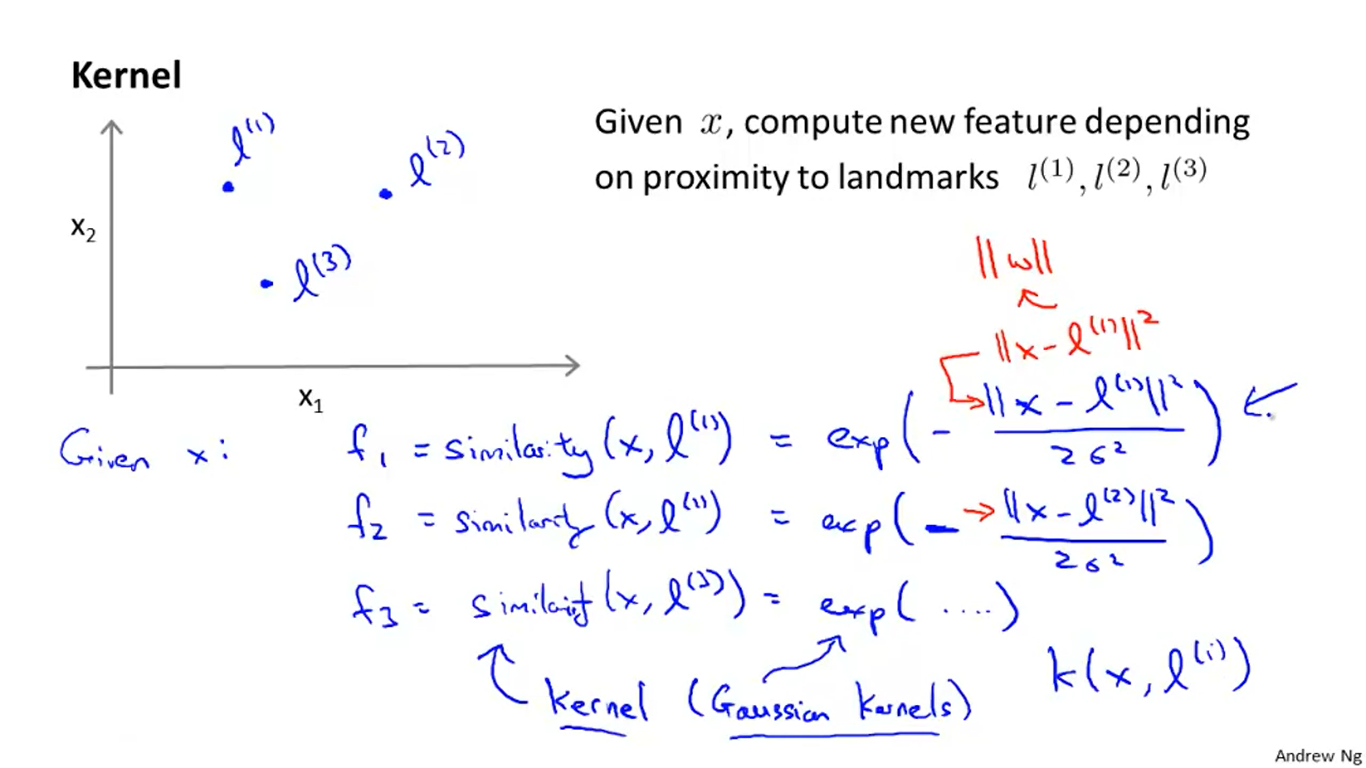 Kernel
l⁽¹⁾
l⁽²⁾
x₂
l⁽³⁾
x₁
Given x, compute new feature depending
on proximity to landmarks l⁽¹⁾, l⁽²⁾, l⁽³⁾
||w||
||x - l⁽¹⁾||²
Given x: f₁ = similarity(x, l⁽¹⁾) = exp(- ||x - l⁽¹⁾||² / 2σ²)
f₂ = similarity(x, l⁽²⁾) = exp(- ||x - l⁽²⁾||² / 2σ²)
f₃ = similarity(x, l⁽³⁾) = exp(....)
kernel (Gaussian kernels) k(x, l⁽ⁱ⁾)
Andrew Ng